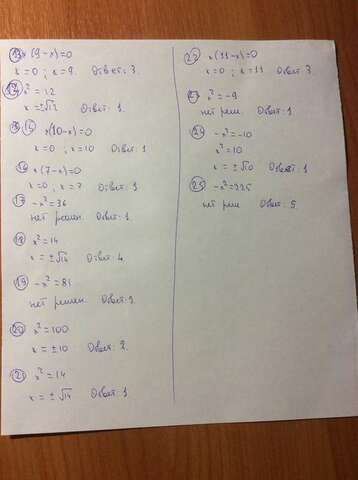 13 x(9-x)=0
x=0; x=9. Ответ: 3.
14 x²=12
x=±√12 Ответ: 1.
15 x(10-x)=0
x=0; x=10 Ответ: 1
16 x(7-x)=0
x=0; x=7 Ответ: 3
17 -x²=36
нет решен. Ответ: 1.
18 x²=14
x=±√14 Ответ: 4.
19 -x²=81
нет решен. Ответ: 2.
20 x²=100
x=±10 Ответ: 2.
21 x²=14
x=±√14 Ответ: 1
22 x(11-x)=0
x=0; x=11 Ответ 3.
x²=-9
нет реш. Ответ: 1
24 -x²=-10
x²=10
x=±√10 Ответ: 1
25 -x²=225
нет реш Ответ: 5.